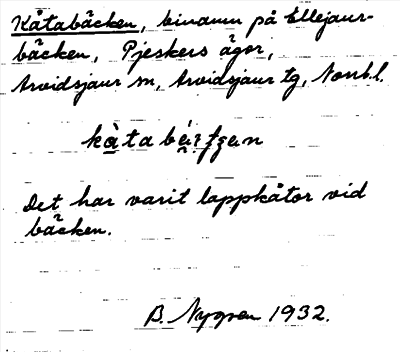 Kåtabäcken, binamn på Ellejaur-
bäcken, Pjeskers ägor,
Arvidsjaur sn, Arvidsjaur tg, Norrb.l.
kåta
Det har varit lappkåtor vid
bäcken.
B. Nygren 1932.